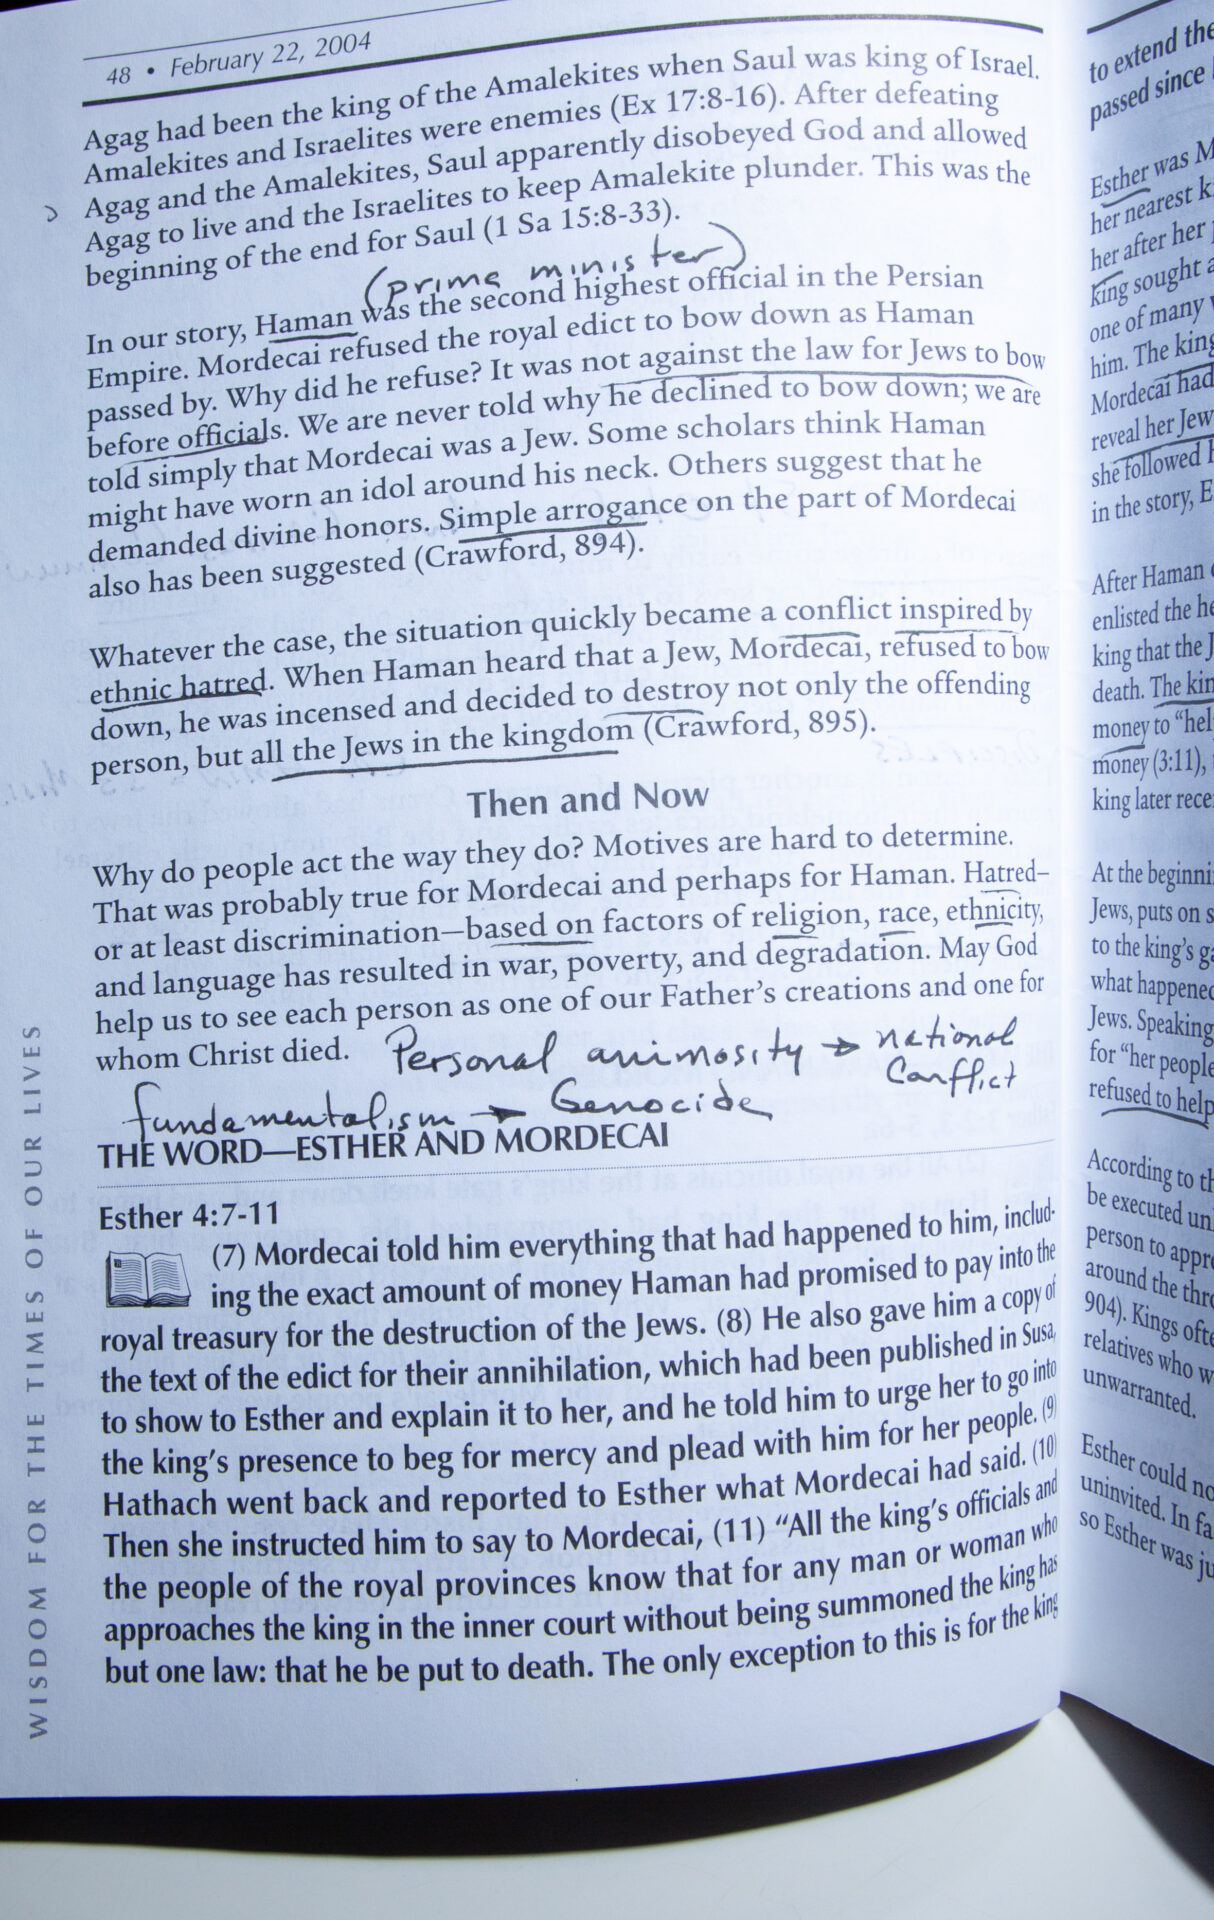 48 • February 22, 2004
Agag had been the king of the Amalekites when Saul was king of Israel.
Amalekites and Israelites were enemies (Ex 17:8-16). After defeating
Agag and the Amalekites, Saul apparently disobeyed God and allowed
Agag to live and the Israelites to keep Amalekite plunder. This was the
beginning of the end for Saul (1 Sa 15:8-33).
(prime minister)
In our story, Haman was the second highest official in the Persian
Empire. Mordecai refused the royal edict to bow down as Haman
passed by. Why did he refuse? It was not against the law for Jews to bow
before officials. We are never told why he declined to bow down; we are
told simply that Mordecai was a Jew. Some scholars think Haman
might have worn an idol around his neck. Others suggest that he
demanded divine honors. Simple arrogance on the part of Mordecai
also has been suggested (Crawford, 894).
Whatever the case, the situation quickly became a conflict inspired by
ethnic hatred. When Haman heard that a Jew, Mordecai, refused to bow
down, he was incensed and decided to destroy not only the offending
person, but all the Jews in the kingdom (Crawford, 895).
Then and Now
Why do people act the way they do? Motives are hard to determine.
That was probably true for Mordecai and perhaps for Haman. Hatred–
or at least discrimination—based on factors of religion, race, ethnicity,
and language has resulted in war, poverty, and degradation. May God
help us to see each person as one of our Father's creations and one for
whom Christ died.
Personal animosity → national
conflict
fundamentalism → Genocide
THE WORD—ESTHER AND MORDECAI
Esther 4:7-11
(7) Mordecai told him everything that had happened to him, includ-
ing the exact amount of money Haman had promised to pay into the
royal treasury for the destruction of the Jews. (8) He also gave him a copy of
the text of the edict for their annihilation, which had been published in Susa,
to show to Esther and explain it to her, and he told him to urge her to go into
the king's presence to beg for mercy and plead with him for her people. (9)
Hathach went back and reported to Esther what Mordecai had said. (10)
Then she instructed him to say to Mordecai, (11) "All the king's officials and
the people of the royal provinces know that for any man or woman who
approaches the king in the inner court without being summoned the king has
but one law: that he be put to death. The only exception to this is for the king
WISDOM FOR THE TIMES OF OUR LIVES
to extend the
passed since
Esther was
her nearest
her after her
king sought
one of many
him. The king
Mordecai had
reveal her Jew
she followed
in the story,
After Haman
enlisted the
king that the
death. The kin
money to "hel
money (3:11),
king later rece
At the beginni
Jews, puts on
to the king's
what happened
Jews. Speaking
for "her people
refused to help
According to
be executed un
person to appr
around the thr
904). Kings ofte
relatives who
unwarranted.
Esther could no
uninvited. In fa
so Esther was ju